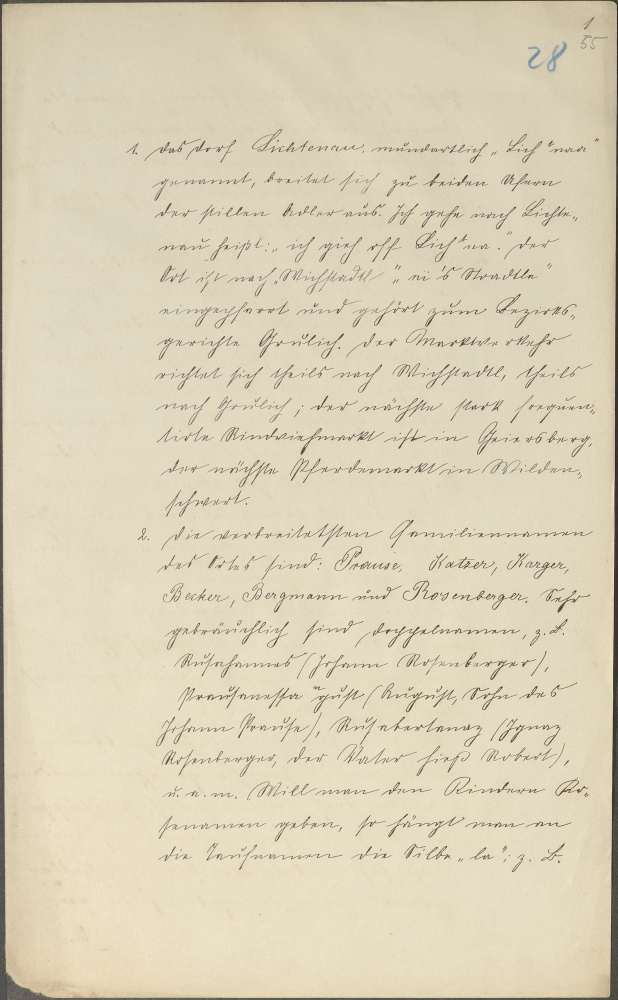 1
55
28
1. Das Dorf Lichtenau, mundartlich „Lich"naa"
genannt, breitet sich zu beiden Ufern
der stillen Adler aus. Ich gehe nach Lichte„
nau heißt: „ich gieh off Lich"na." Der
Ort ist nach „Wichstadtl" „ei 's Stadtla"
eingepfarrt und gehört zum Bezirks„
gerichte Grulich. Der Marktverkehr
richtet sich theils nach Wichstadtl, theils
nach Grulich; der nächste stark frequen„
tirte Rindviehmarkt ist in Geiersberg,
der nächste Pferdemarkt in Wilden„
schwert.
2. Die verbreitetsten Familiennamen
des Ortes sind: Prause, Katzer, Karger,
Becker, Bergmann und Rosenberger. Sehr
gebräuchlich sind Doppelnamen, z. B.
Rusahannes (Johann Rosenberger),
gust (August, Sohn des
Johann Prause), (Ignaz
Rosenberger, der Vater hieß Robert),
u. a. m. Will man den Kindern Ko„
senamen geben, so hängt man an
die Taufnamen die Silbe „la"; z. B.